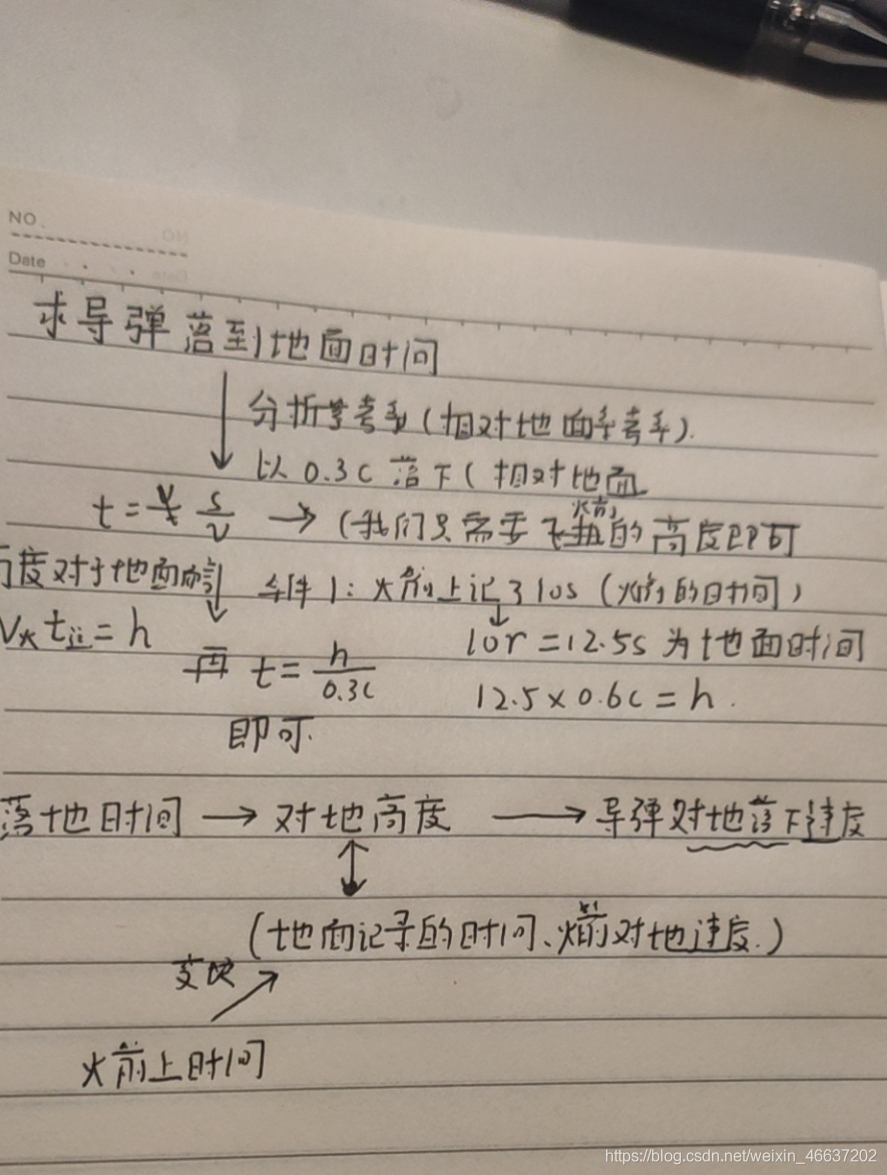 NO.
Date
求导弹落到地面时间
分析参考系(相对地面参考系).
以0.3c落下(相对地面
t = s/v → (我们只需要飞火箭的高度即可
度对于地面而言 条件1:火箭上记了10s(火箭的时间)
V火 t地 = h 10r = 12.5s 为地面时间
再 t = h/0.3c 12.5×0.6c = h.
即可.
落地时间 → 对地高度 → 导弹对地落下速度
(地面记录的时间、火箭对地速度.)
变换
火箭上时间
https://blog.csdn.net/weixin_46637202